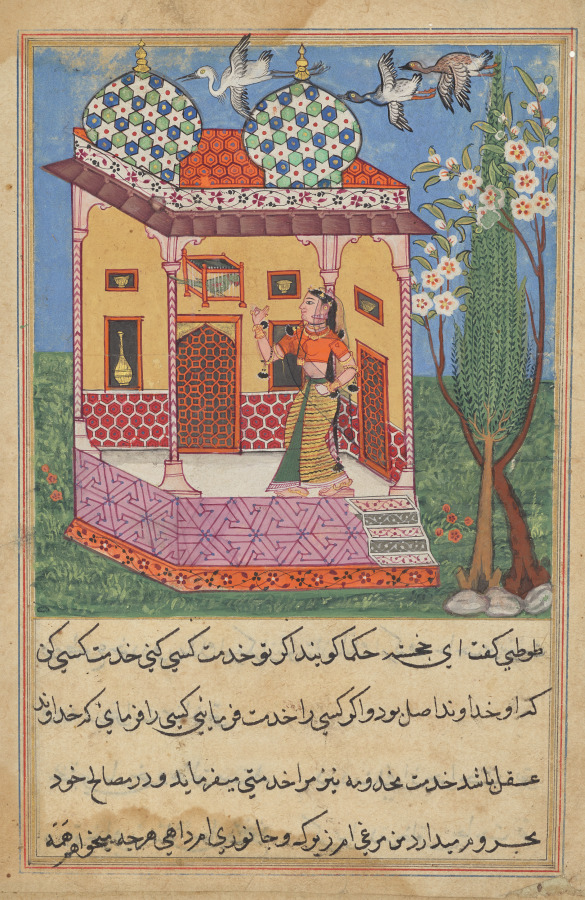 طوطی کفت ای خجسته حکما کویند اکر تو خدمت کسی کنی خدمت کسی کن
که او خداوند اصل بود و اکر کسی را خدمت فرمانی کسی را فرمای که خداوند
عقل باشد خدمت مخدومه نیز مرا خدمتی میفرماید و در مصالح خود
محروم میدارد من مرغی ام زیرک و جانوری ام داهی هرچه میخواهم همه